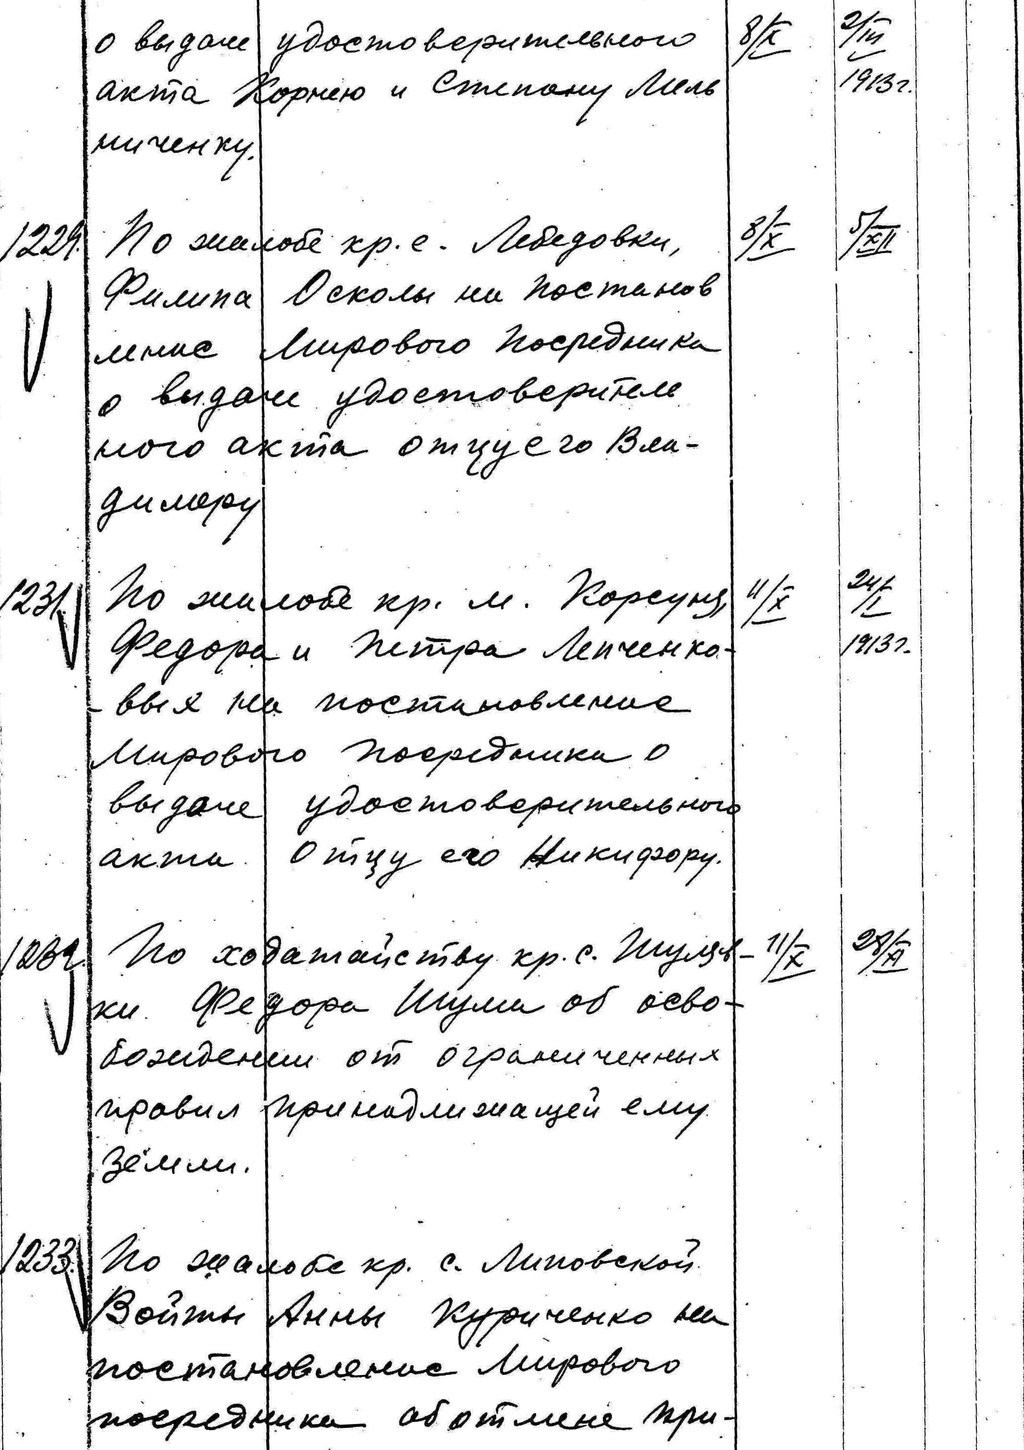 о выдаче удостоверительного 8/X 2/III
акта Корнею и Степану Мель 1913г.
ниченку.
1229. По жалобе кр. с. Лебедовки, 8/X 5/XII
Филипа Осколы на постанов
ление Мирового Посредника
о выдаче удостоверитель
ного акта отцу его Вла-
димиру
1231. По жалобе кр. м. Корсуня, 11/X 24/I
Федора и Петра Лепченко- 1913г.
-вых на постановление
Мирового Посредника о
выдаче удостоверительного
акта Отцу его Никифору.
1232. По ходатайству кр. с. Шуляв- 11/X 28/XI
ки Федора Шума об осво-
бождении от ограниченных
правил принадлежащей ему
земли.
1233. По жалобе кр. с. Липовской
Войты Анны Куриченко на
постановление Мирового
посредника об отмене при-